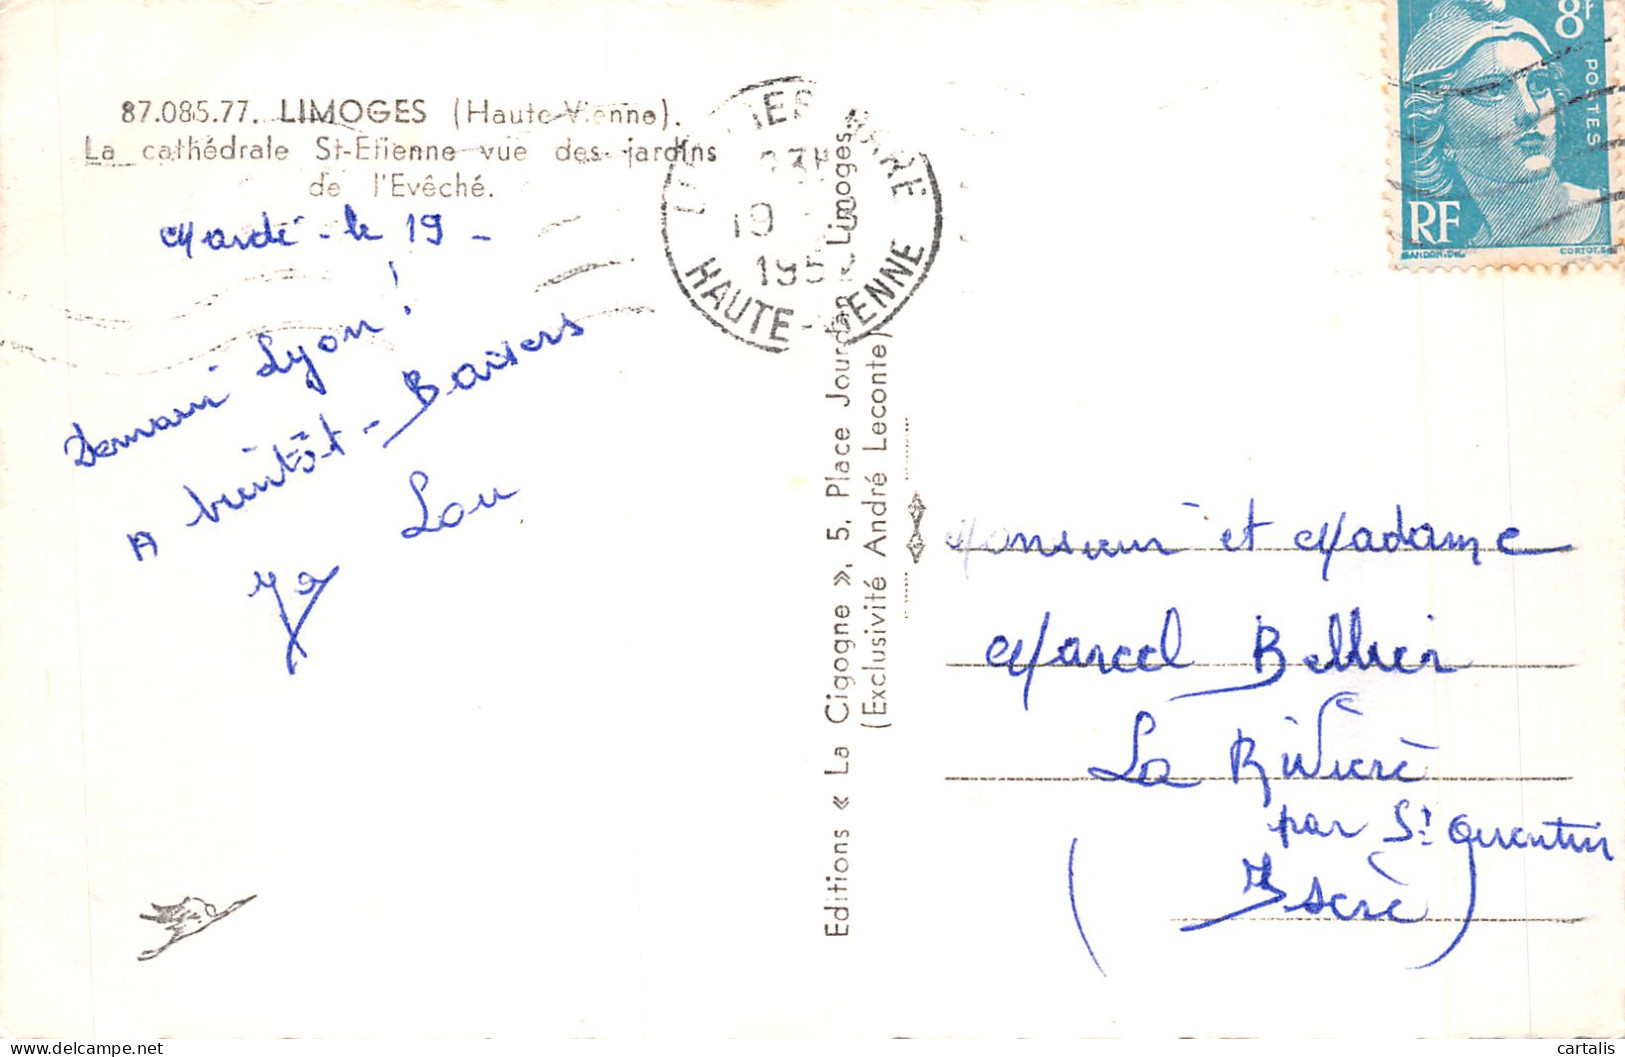 87.085.77. LIMOGES (Haute-Vienne).
La cathédrale St-Etienne vue des jardins
de l'Evêché.
Mardi - le 19 -
Demain Lyon !
A bientôt - Baisers
Lou
Editions « La Cigogne », 5, Place Jourdan, Limoges.
(Exclusivité André Leconte)
19
195
HAUTE-VIENNE
8F
POSTES
RF
GANDON.DEL
CORTOT.SC
Monsieur et Madame
Marcel Bellier
La Rivière
par St Quentin
(Isère)
cartalis